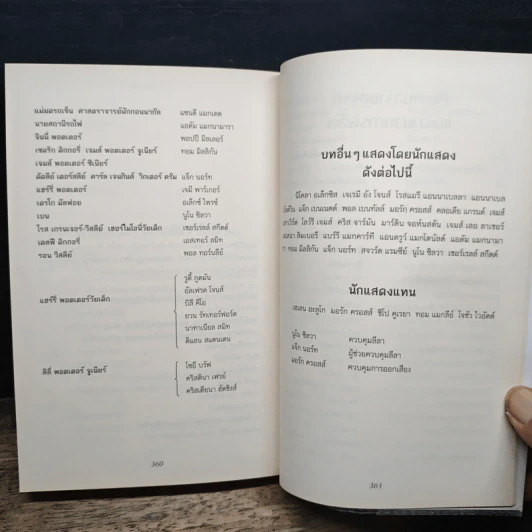 แม่มดรถเข็น ศาสตราจารย์มักกอนนากัล แซนดี แมกเดด
นายสถานีรถไฟ แอดัม แมกนามารา
จินนี่ พอตเตอร์ พอปปี มิลเลอร์
เซดริก ดิกกอรี่ เจมส์ พอตเตอร์ จูเนียร์ ทอม มิลลิกัน
เจมส์ พอตเตอร์ ซีเนียร์
ดัดลีย์ เดอร์สลีย์ คาร์ล เจนกินส์ วิกเตอร์ ครัม แจ็ก นอร์ท
แฮร์รี่ พอตเตอร์ เจมี พาร์เกอร์
เดรโก มัลฟอย อเล็กซ์ ไพรซ์
เบน นูโน ซิลวา
โรส เกรนเจอร์-วีสลีย์ เฮอร์ไมโอนี่วัยเด็ก เชอร์เรลล์ สกีตต์
เดลฟี ดิกกอรี่ เอสเทอร์ สมิท
รอน วีสลีย์ พอล ทอร์นลีย์
แฮร์รี่ พอตเตอร์วัยเด็ก
รูดี้ กูดมัน
อัลเฟรด โจนส์
บิลี คีโอ
อีวาน รัทเทอร์ฟอร์ด
นาทาเนียล สมิท
ดิแลน สแตนเดน
ลิลี่ พอตเตอร์ จูเนียร์
โซอี บรัฟ
คริสตินา เฟรย์
คริสเตียนา ฮัตชิงส์
360
บทอื่นๆ แสดงโดยนักแสดง
ดังต่อไปนี้
นิโคลา อเล็กซิส เจเรมี อัง โจนส์ โรสแมรี แอนนาเบลลา แอนนาเบล
แจ็ก เบนเนตต์ พอล เบนทัลล์ มอรัก ครอสส์ คลอเดีย แกรนต์ เจมส์
โลว์รี เจมส์ คริส จาร์มัน มาร์ติน จอห์นสตัน เจมส์ เลอ ลาเชอร์
แบร์รี แมกคาร์ที แอนดรูว์ แมกโดนัลด์ แอดัม แมกนามารา
ทอม มิลลิกัน แจ็ก นอร์ท สจวร์ต แรมซีย์ นูโน ซิลวา เชอร์เรลล์ สกีตต์
นักแสดงแทน
เฮเลน อะลูโก มอรัก ครอสส์ ชิโป คูเรยา ทอม แมกลีย์ โจชัว ไวอัตต์
นูโน ซิลวา ควบคุมลีลา
แจ็ก นอร์ท ผู้ช่วยควบคุมลีลา
มอรัก ครอสส์ ควบคุมการออกเสียง
361